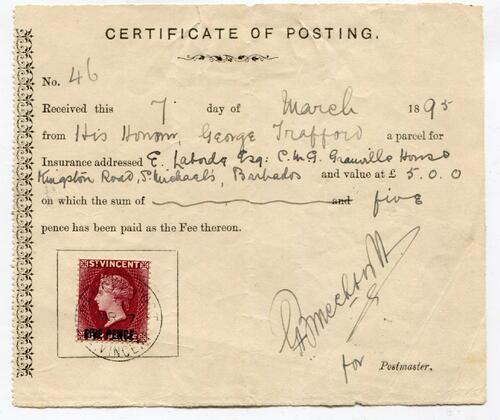 CERTIFICATE OF POSTING.
No. 46
Received this 7 day of March 1895
from His Honour, George Trafford a parcel for
Insurance addressed E. Laborde Esq: C.M.G. Granville House
Kingston Road, St Michael's, Barbados and value at £ 5.0.0
on which the sum of and five
pence has been paid as the Fee thereon.
ST VINCENT
FIVE PENCE
VINCENT
for Postmaster.